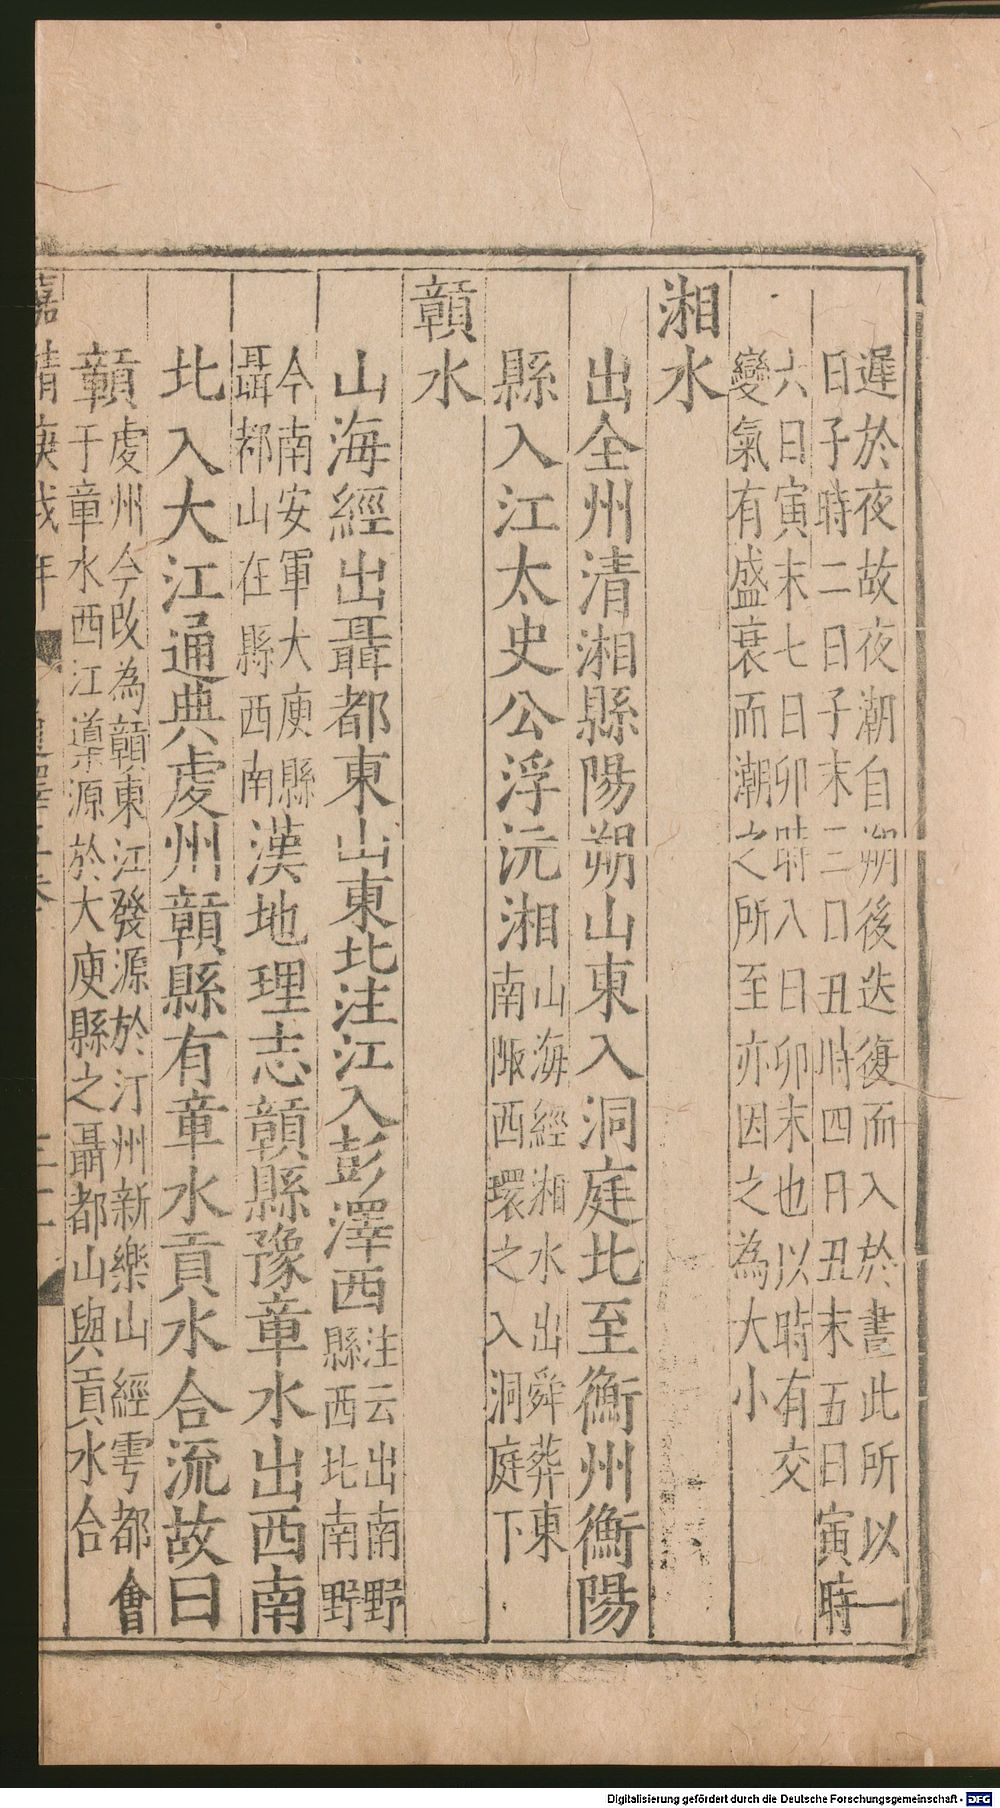 遲於夜故夜潮自朔後迭復而入於晝此所以一
日子時二日子末三日丑時四日丑末五日寅時
六日寅末七日卯時八日卯末也以時有交
變氣有盛衰而潮之所至亦因之為大小
湘水
出全州清湘縣陽朔山東入洞庭北至衡州衡陽
縣入江太史公浮沅湘
山海經湘水出舜葬東
南陬西環之入洞庭下
贑水
山海經出聶都東山東北注江入彭澤西
注云出南野
縣西北南野
今南安軍大庾縣
聶都山在縣西南
漢地理志贑縣豫章水出西南
北入大江通典虔州贑縣有章水貢水合流故曰
贑
虔州今改為贑東江發源於汀州新樂山經雩都會
于章水西江導源於大庾縣之聶都山與貢水合
嘉靖庚戌年
Digitalisierung gefördert durch die Deutsche Forschungsgemeinschaft - DFG